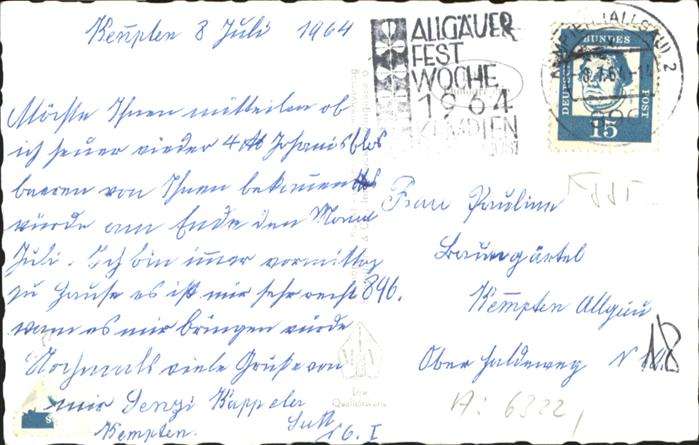 Kempten 8 Juli 1964
ALLGÄUER
FEST
WOCHE
1964
KEMPTEN
DEUTSCHE BUNDESPOST
15
Möchte Ihnen mitteilen ob
ich heuer wieder 4 Johanisb
beeren von Ihnen bekommen
würde am Ende den Monat
Juli. Ich bin imer vormittag
zu Hause es ist mir sehr recht
wann es mir bringen würde
Nochmals viele Grüße von
mir Senzi Kappeler
Kempten.
16. I
Frau Pauline
Baumgärtel
Kempten Allgäu
Ober Haldeweg N 18
A: 6322